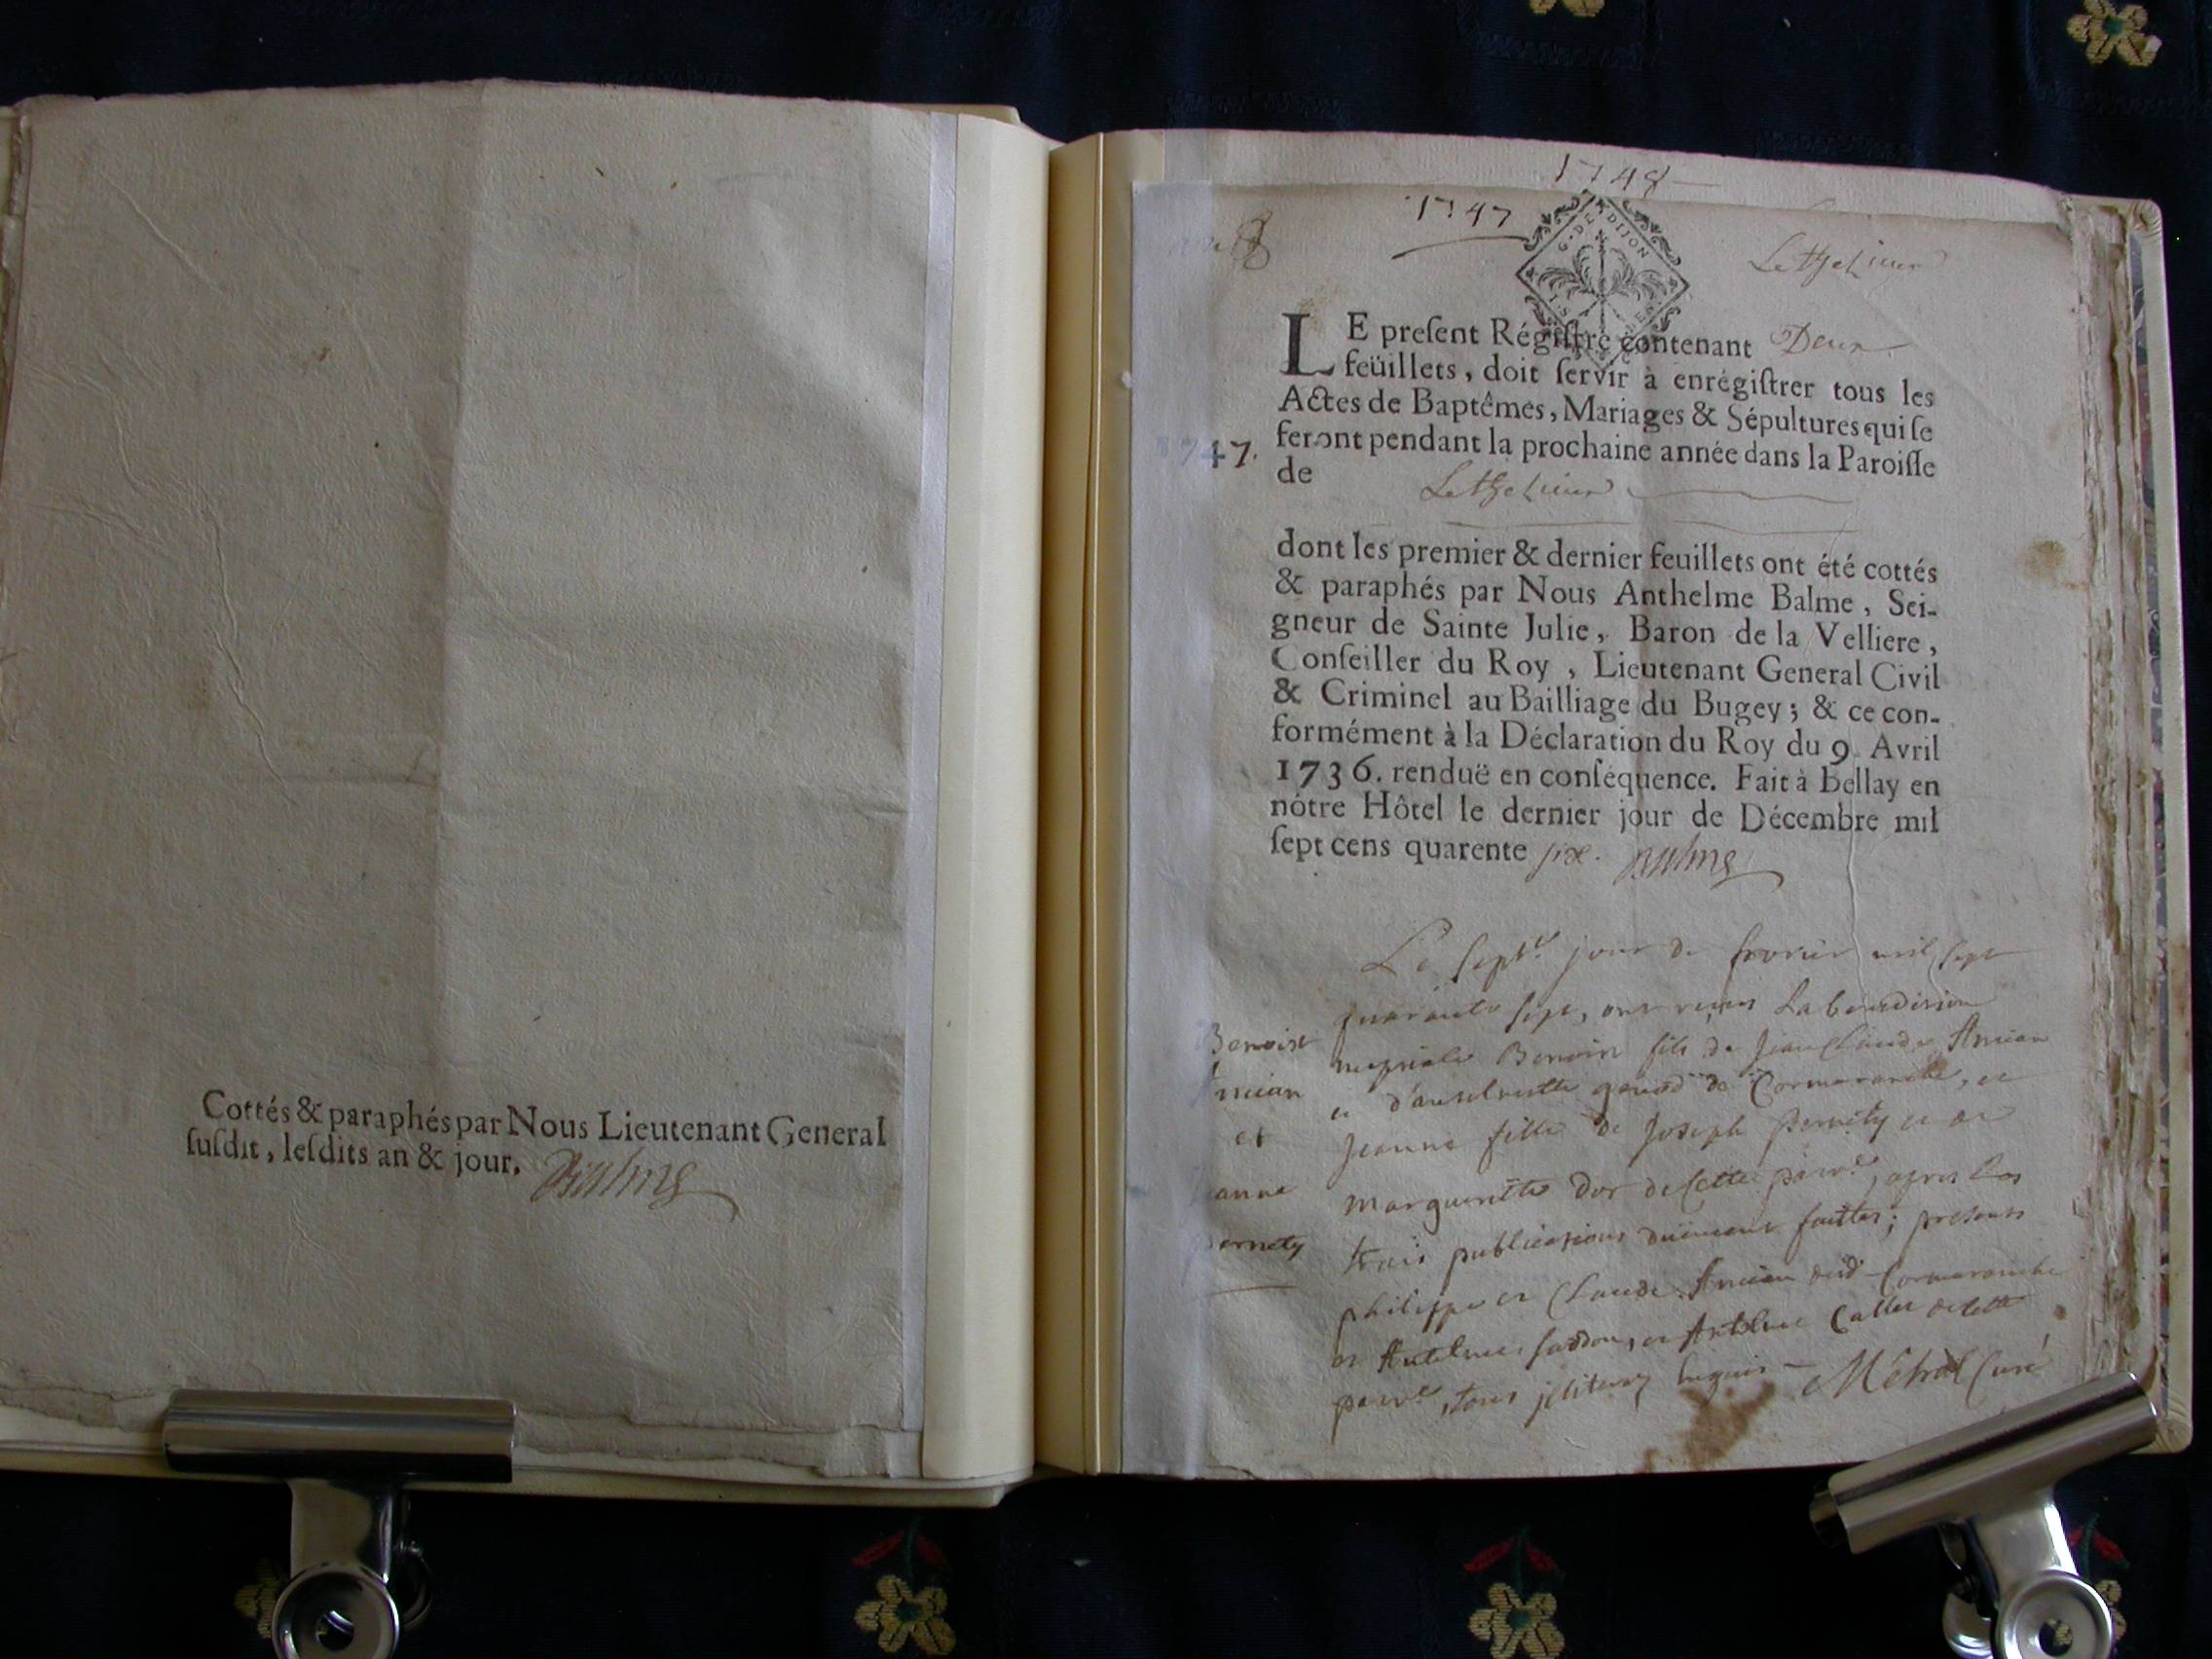 Cottés & paraphés par Nous Lieutenant General
ſuſdit, leſdits an & jour. Balme
1748
1747
G. DE DIJON
LE preſent Régiſtre contenant Deux
feüillets, doit ſervir à enrégiſtrer tous les
Actes de Baptêmes, Mariages & Sépultures qui ſe
feront pendant la prochaine année dans la Paroiſſe
de
1747.
dont les premier & dernier feuillets ont été cottés
& paraphés par Nous Anthelme Balme, Sei-
gneur de Sainte Julie, Baron de la Velliere,
Conſeiller du Roy, Lieutenant General Civil
& Criminel au Bailliage du Bugey; & ce con-
formément à la Déclaration du Roy du 9. Avril
1736. renduë en conſéquence. Fait à Bellay en
nôtre Hôtel le dernier jour de Décembre mil
ſept cens quarente ſix. Balme
Benoist
et
Le sept.e jour de fevrier mil sept
quarante sept, ont reçus La benediction
nuptiale Benoin fils de Jean Claude Ancian
et de Cormaranche, et
Jeanne fille de Joseph pernety et de
margueritte Dor de cette parr.e, apres les
trois publications duement faittes; presents
philippe et Claude Ancian dud Cormaranche
et Antelme et Antelme Callet de cette
parr.e, tous requis Métral Curé